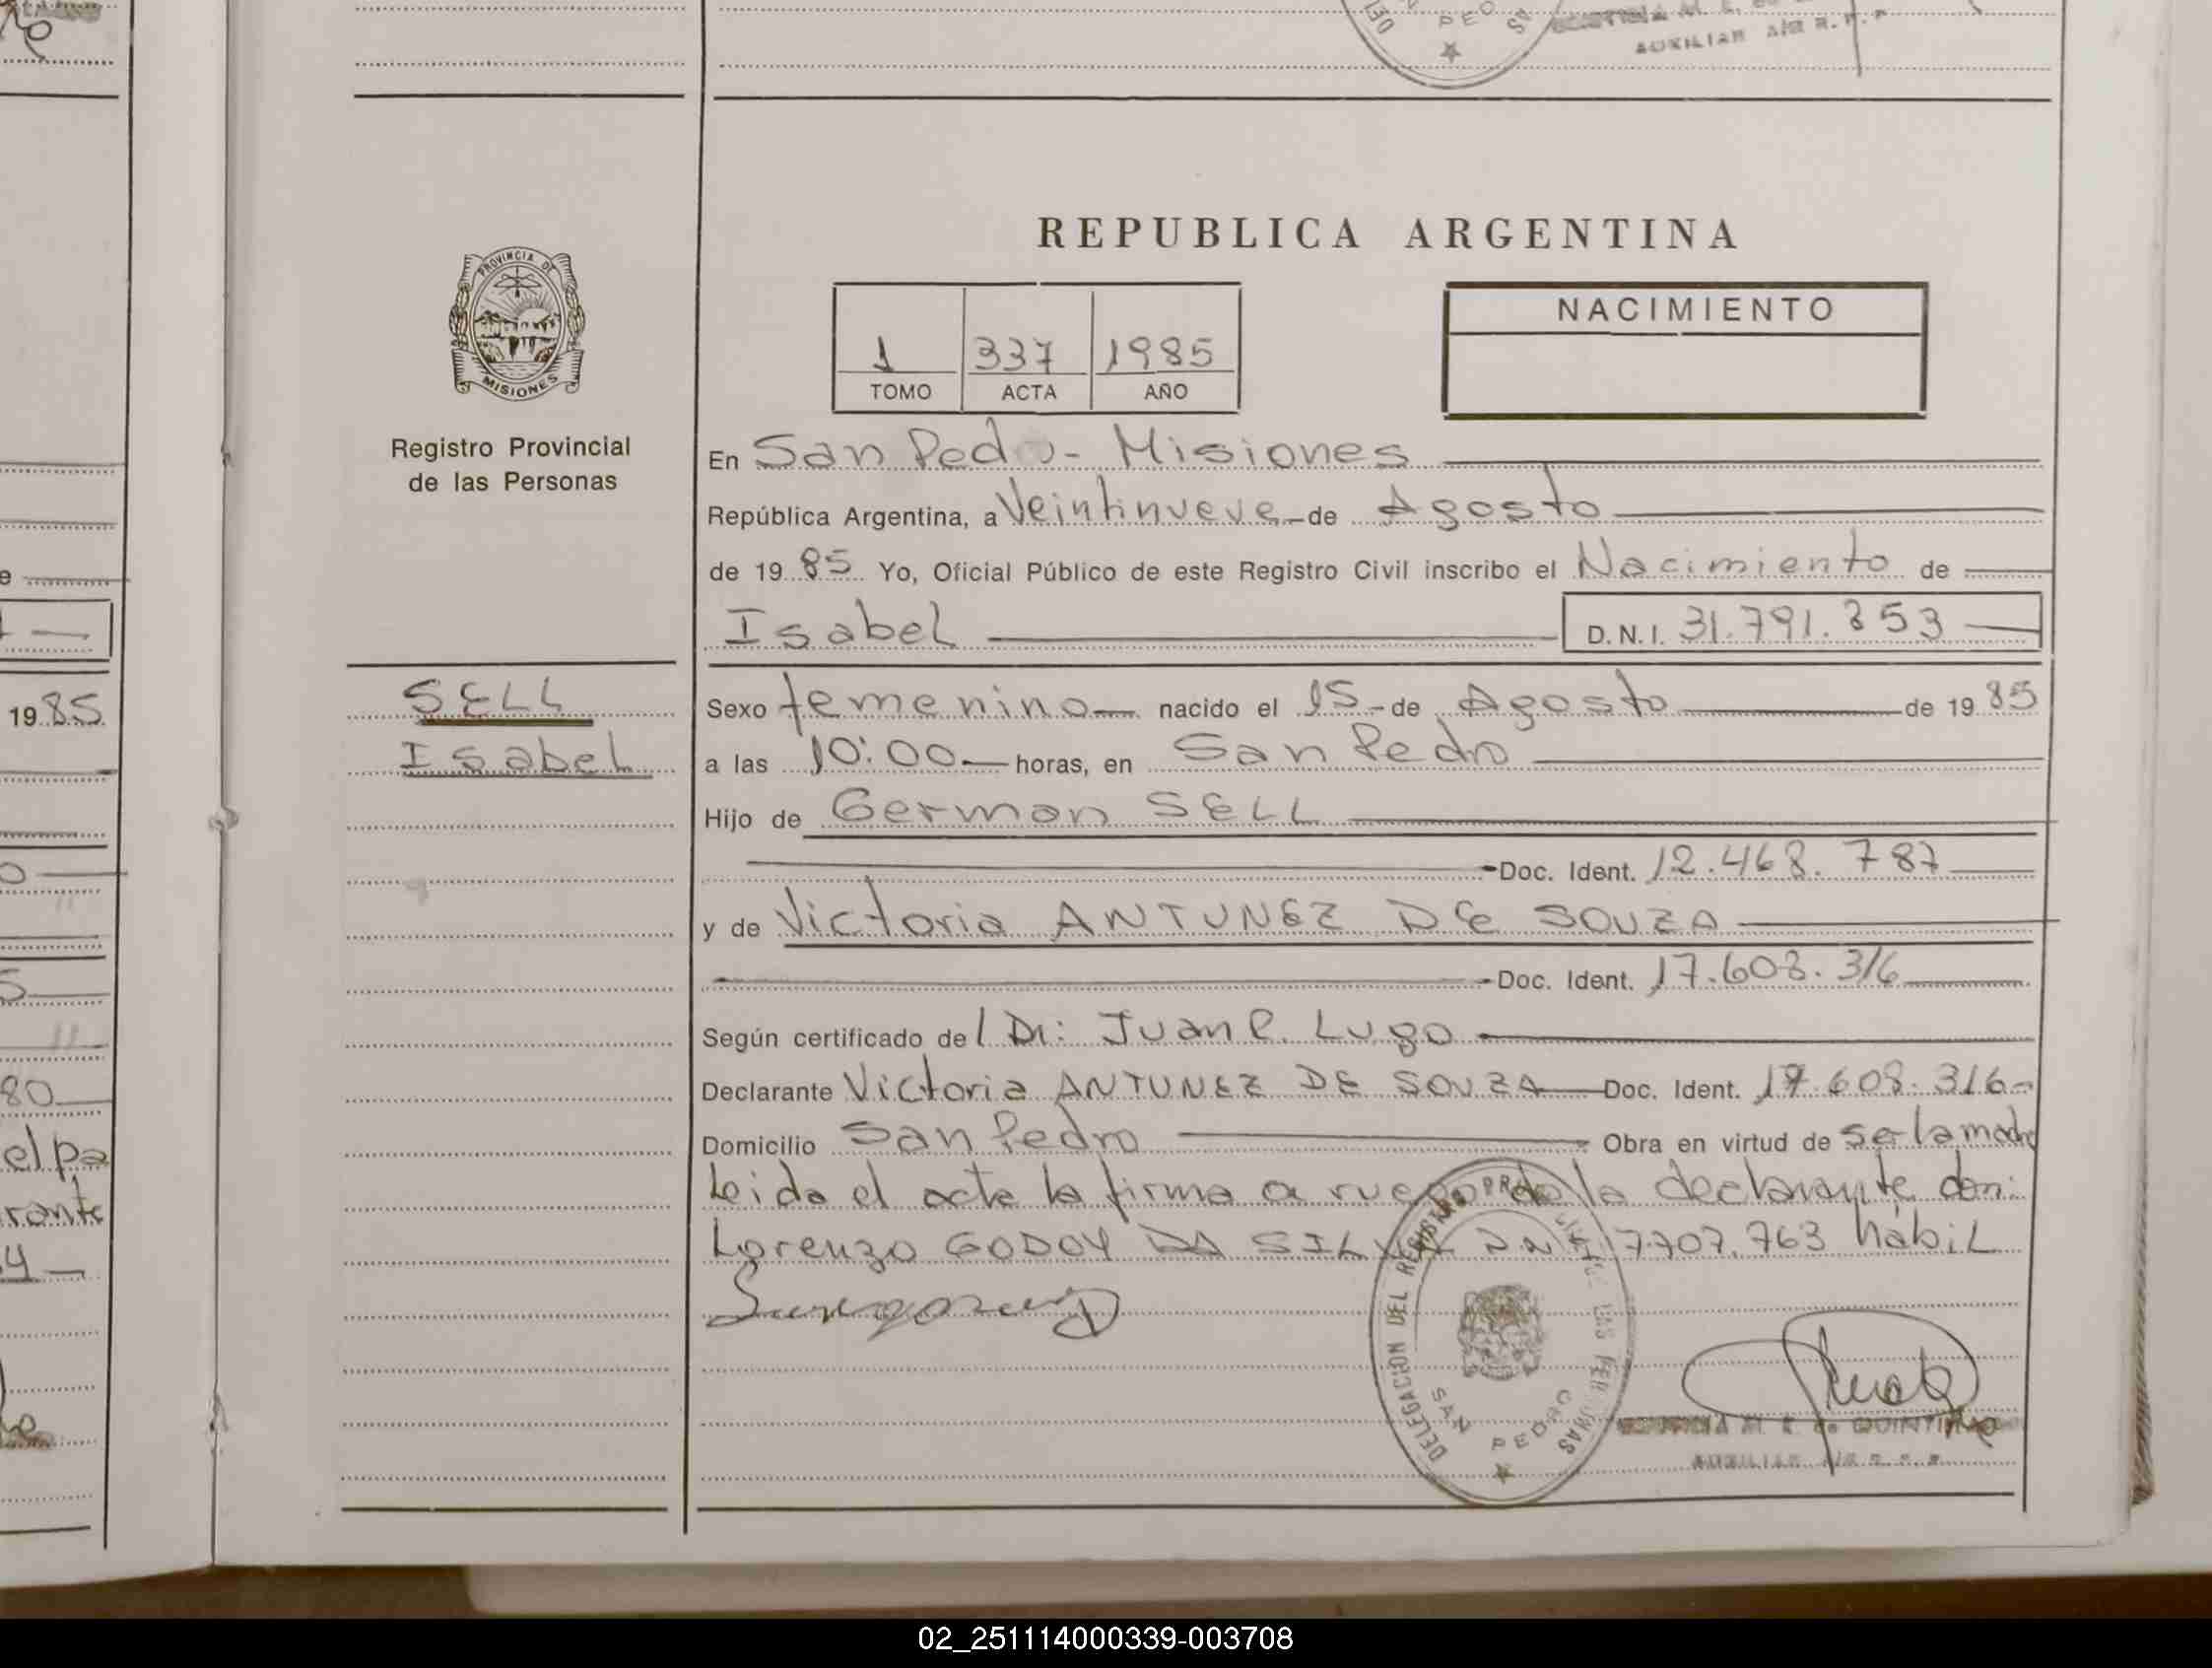 PEDRO
AUXILIAR
REPUBLICA ARGENTINA
PROVINCIA DE
MISIONES
NACIMIENTO
1 337 1985
TOMO ACTA AÑO
Registro Provincial
de las Personas
En San Pedro - Misiones
República Argentina, a Veintinueve de Agosto
de 1985 Yo, Oficial Público de este Registro Civil inscribo el Nacimiento de
Isabel D.N.I. 31.791.853
SELL
Isabel
1985
Sexo femenino nacido el 15 de Agosto de 1985
a las 10:00 horas, en San Pedro
Hijo de German SELL
Doc. Ident. 12.468.787
y de Victoria ANTUNEZ DE SOUZA
Doc. Ident. 17.608.316
Según certificado del Dr: Juan C. Lugo
Declarante Victoria ANTUNEZ DE SOUZA Doc. Ident. 17.608.316
Domicilio San Pedro Obra en virtud de ser la madre
Leida el acta la firma a ruego de la declarante don:
Lorenzo GODOY DA SILVA DNI 7.707.763 hábil
DELEGACION DEL REGISTRO PROV. DE LAS PERSONAS
SAN PEDRO
M. E. de QUINTANA
AUXILIAR
02_251114000339-003708